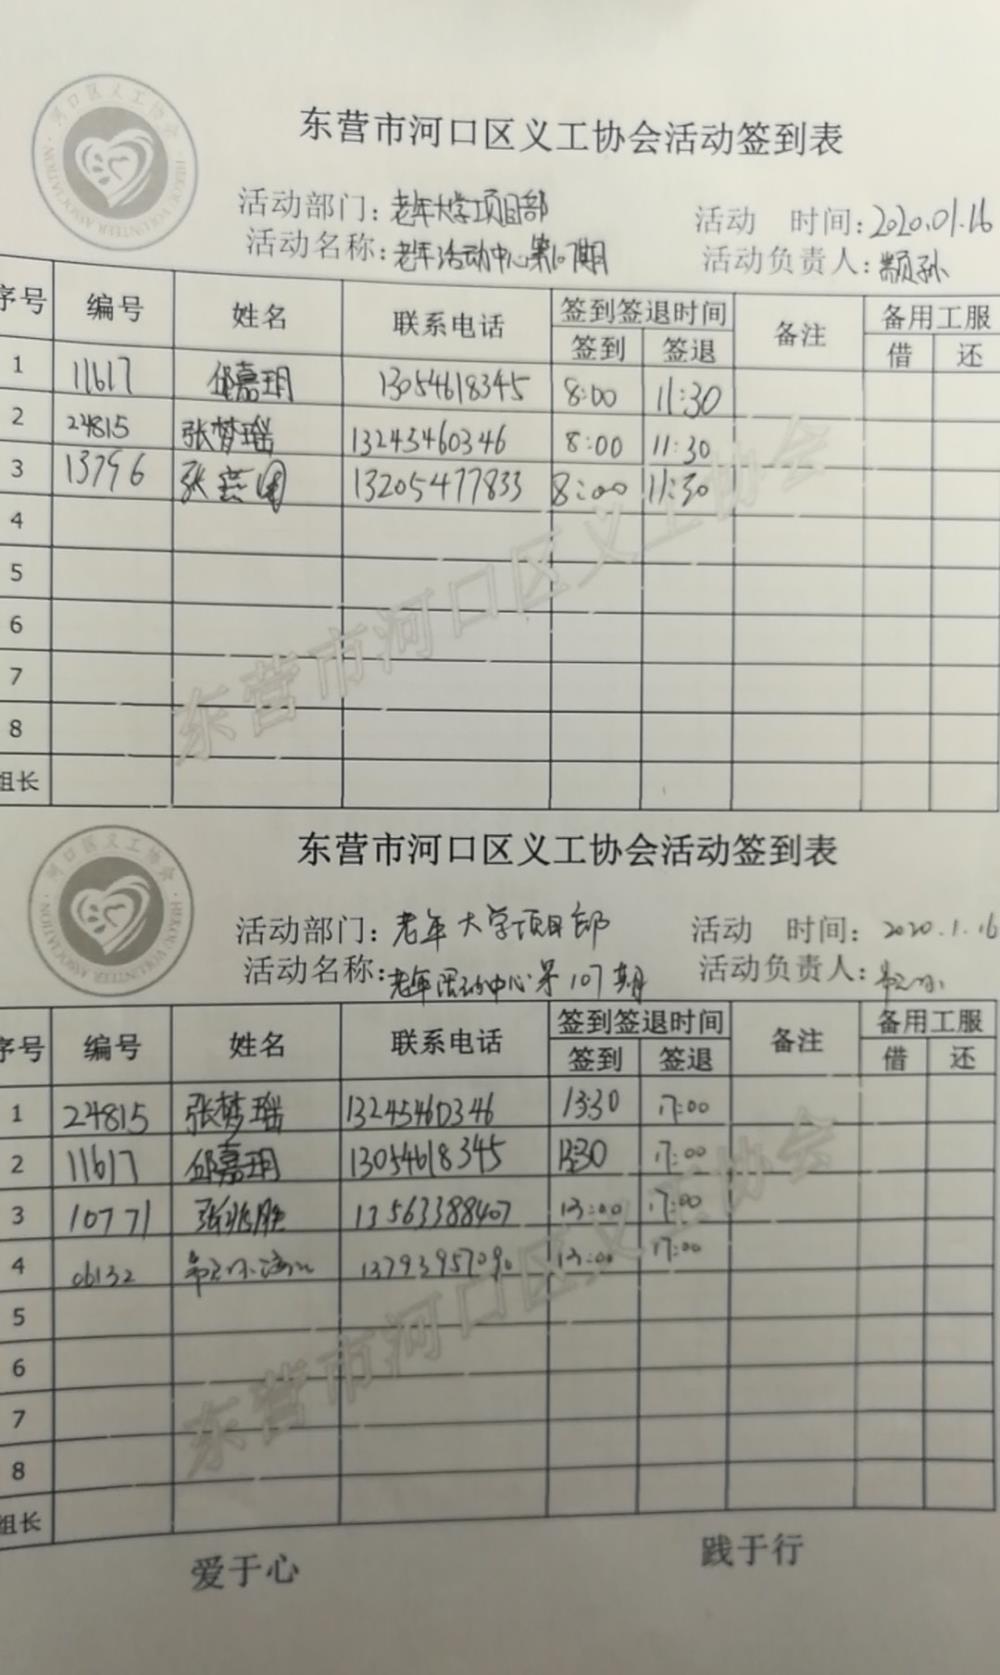 河口区义工协会
HEKOU VOLUNTEER ASSOCIATION
东营市河口区义工协会活动签到表
活动部门：老年大学项目部 活动 时间：2020.01.16
活动名称：老年活动中心第107期 活动负责人：颛孙
序号 编号 姓名 联系电话 签到签退时间 备注 备用工服
签到 签退 借 还
1 11617 邱嘉玥 13054618345 8:00 11:30
2 24815 张梦瑶 13245460346 8:00 11:30
3 13796 张 13205477833 8:00 11:30
4
5
6
7
8
组长
东营市河口区义工协会
河口区义工协会
HEKOU VOLUNTEER ASSOCIATION
东营市河口区义工协会活动签到表
活动部门：老年大学项目部 活动 时间：2020.1.16
活动名称：老年活动中心第107期 活动负责人：
序号 编号 姓名 联系电话 签到签退时间 备注 备用工服
签到 签退 借 还
1 24815 张梦瑶 13245460346 13:30 17:00
2 11617 邱嘉玥 13054618345 13:30 17:00
3 10771 张兆胜 13563388407 13:00 17:00
4 06132 13793957090 13:00 17:00
5
6
7
8
组长
东营市河口区义工协会
爱于心 践于行